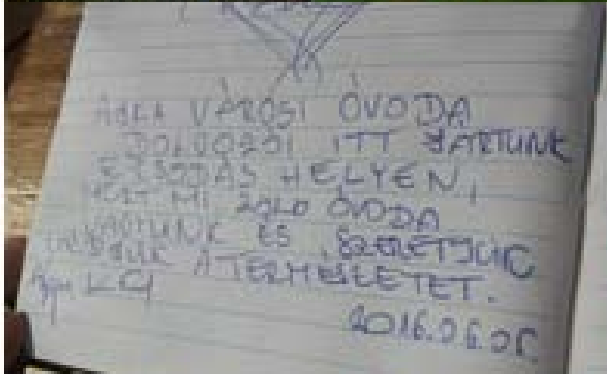 VÁROSI ÓVODA
DOLGOZÓI ITT JÁRTUNK
CSODÁS HELYEN,
MERT MI ZÖLD ÓVODA
VAGYUNK ÉS SZERETJÜK
A TERMÉSZETET.
2016.06.05.